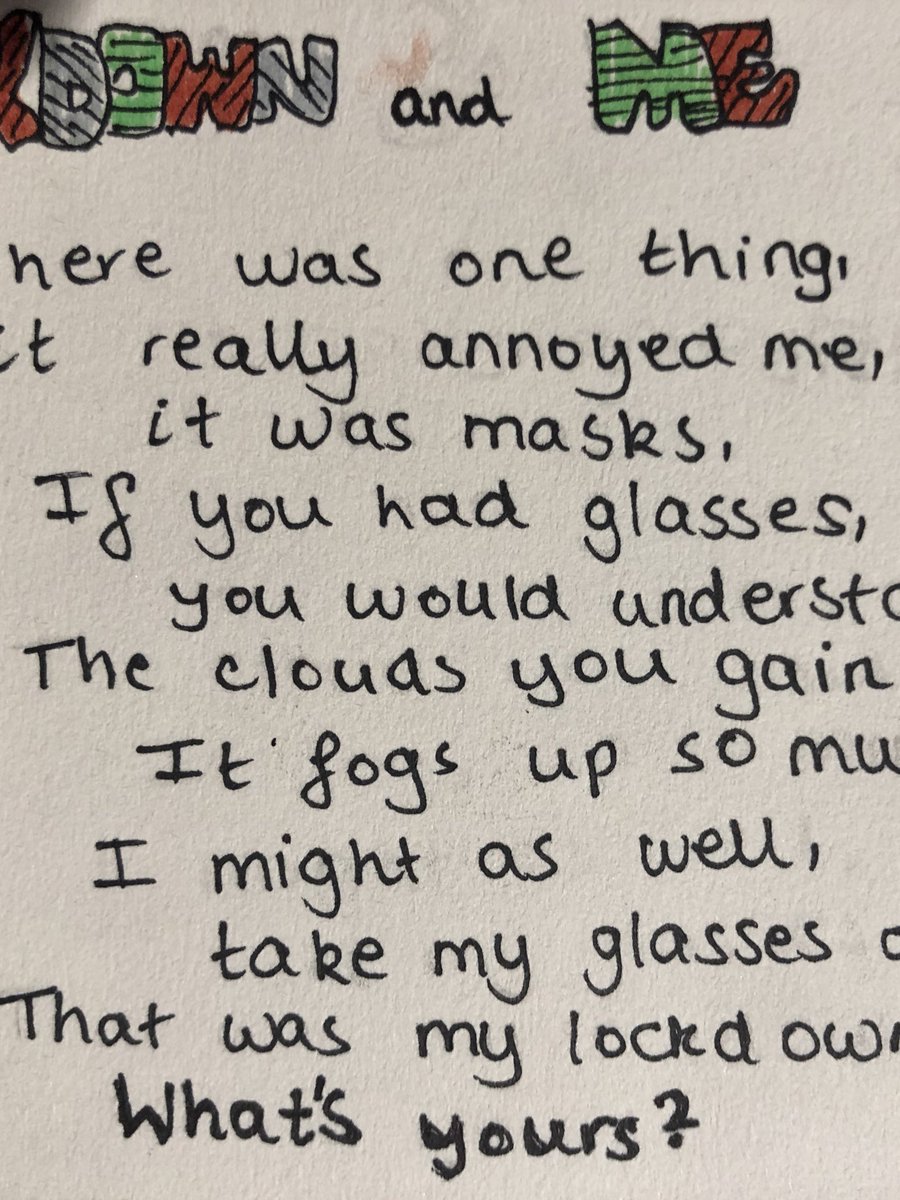 KDOWN and ME
here was one thing,
it really annoyed me,
it was masks,
If you had glasses,
you would understa
The clouds you gain
It fogs up so mu
I might as well,
take my glasses o
That was my lockdown
What's yours?